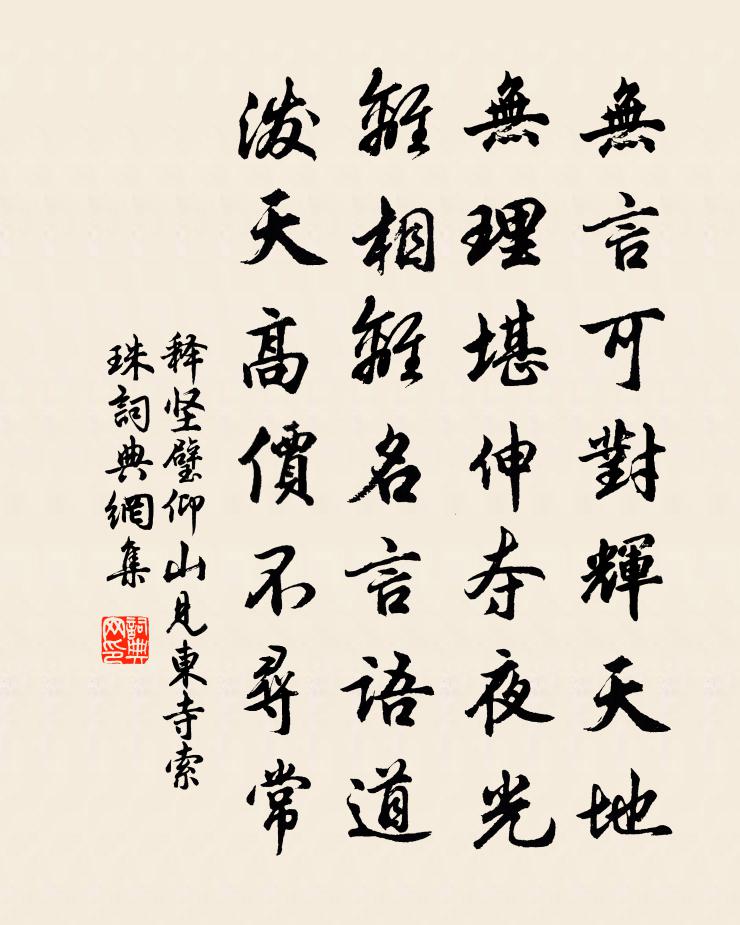 無言可對輝天地
無理堪伸夺夜光
離相離名言語道
潑天高價不尋常
释坚璧仰山見東寺索
珠詞典網集
詞典
网印